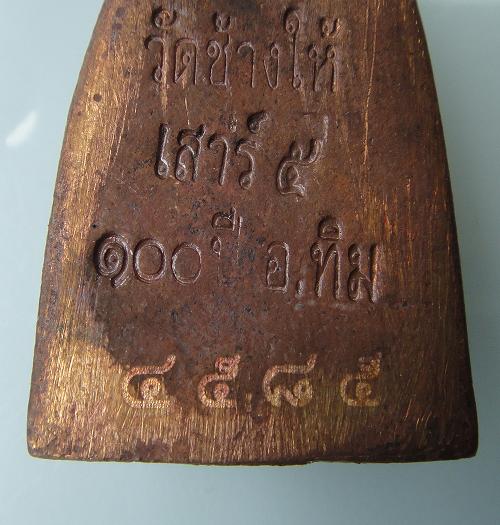 วัดช้างให้
เสาร์ ๕
๑๐๐ ปี อ.ทิม
๔๕๘๕